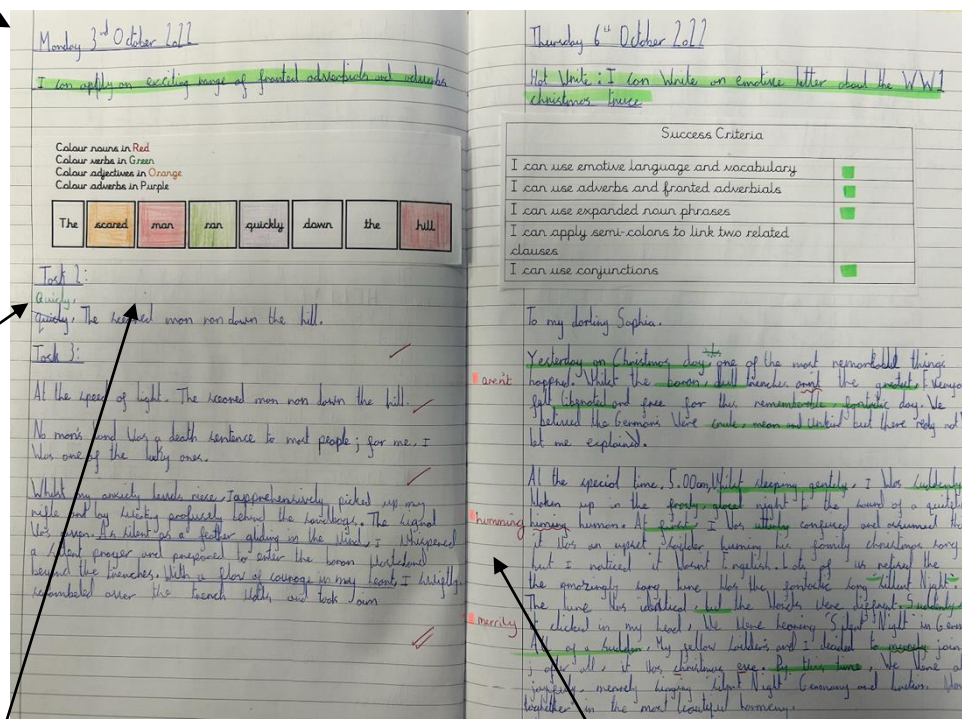 Monday 3rd October 2022
I can apply an exciting range of fronted adverbials and adverbs
Colour nouns in Red
Colour verbs in Green
Colour adjectives in Orange
Colour adverbs in Purple
The scared man ran quickly down the hill
Task 2:
Quickly,
The scared man ran down the hill.
Task 3:
At the speed of light. The scared man ran down the hill.
No man's land was a death sentence to most people; for me, I
was one of the lucky ones.
Whilst my anxiety levels rise, I apprehensively picked up my
rifle and lay profusely behind the sandbags. The signal
was given. As silent as a feather gliding in the wind, I whispered
a silent prayer and prepared to enter the baron
beyond the trenches. With a flow of courage in my heart, I
the trench and took
Thursday 6th October 2022
Hot Write: I can Write an emotive letter about the WW1
christmas truce
Success Criteria
I can use emotive language and vocabulary
I can use adverbs and fronted adverbials
I can use expanded noun phrases
I can apply semi-colons to link two related
clauses
I can use conjunctions
To my darling Sophia.
Yesterday on Christmas day, one of the most things
aren't
Whilst the baron, dull trenches the
felt and free for this day. We
the Germans Were mean and but there not
let me explained.
At the special time, 5.00am, Whilst sleeping gently, I Was suddenly
Woken up in the frosty, night to the sound of a
humming
human. At first, I Was confused and assumed
it Was an upset his family christmas song
but I noticed it English. Lots of us the
the amazingly song, tune Was the fantastic song "Silent Night".
The tune Was identical, but the Words Were Suddenly
it clicked in my head, We Were hearing Night in
merrily
All of a sudden, My and I decided to join
; after all, it Was christmas eve. By this time, We Were
singing Silent Night and
together in the most beautiful